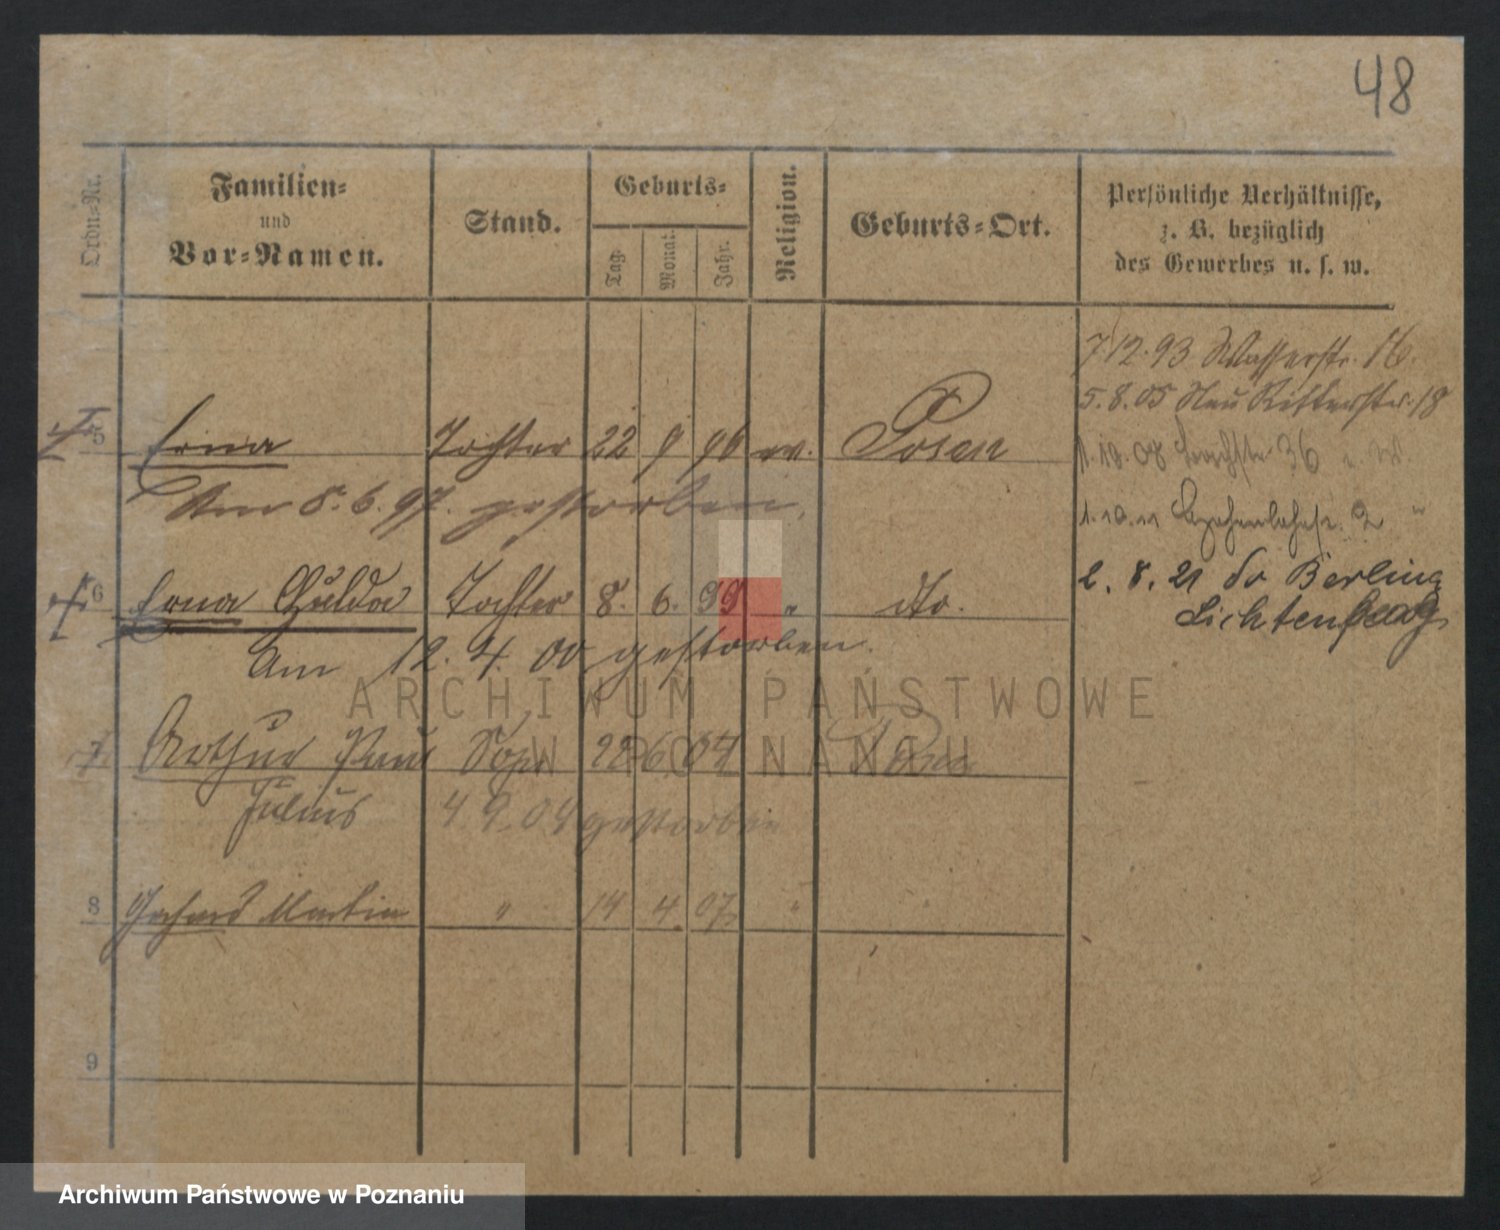 48
Ordn=Nr.
Familien=
und
Vor=Namen.
Stand.
Geburts=
Tag.
Monat.
Jahr.
Religion.
Geburts=Ort.
Persönliche Verhältnisse,
z. B. bezüglich
des Gewerbes u. s. w.
7.12.93 Wasserstr. 16.
5.8.05 Neu Ritterstr. 18
5 Erna Tochter 22 9 96 ev. Posen
1.10.08 36
Am 8.6.97. gestorben.
1.10.11 2 "
6 Erna Hulda Tochter 8. 6. 99 " dto.
2. 8. 21 Berlin
Lichtenberg
Am 12. 4. 00 gestorben.
7 Arthur Paul Sohn 22 6 04 Posen
Julius 4 9 04 gestorben
8 Gerhard Martin " 14 4 07 " "
9
ARCHIWUM PAŃSTWOWE
W POZNANIU
Archiwum Państwowe w Poznaniu